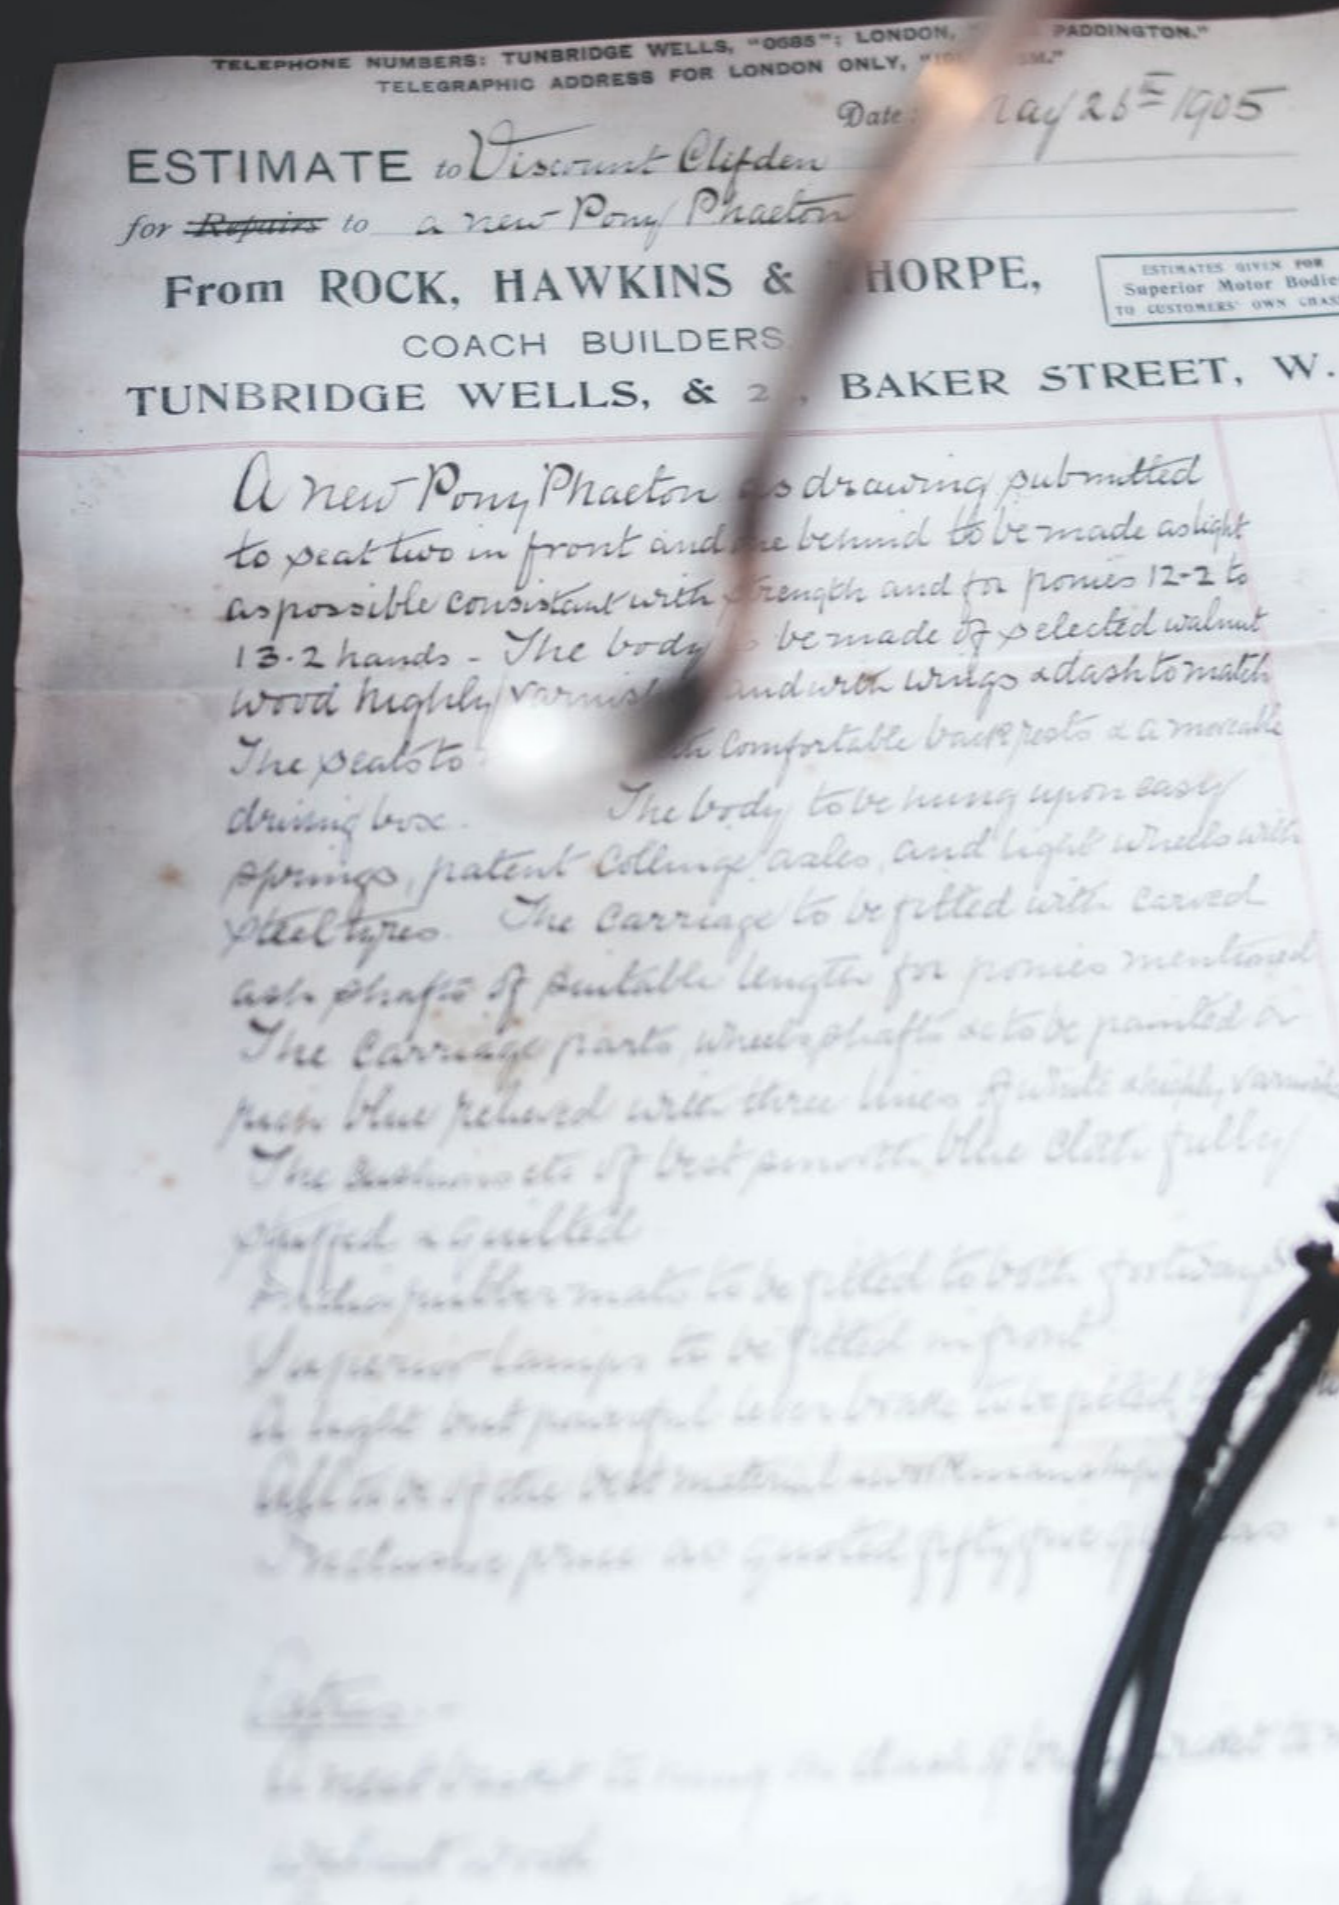 TELEPHONE NUMBERS: TUNBRIDGE WELLS, "0685"; LONDON, PADDINGTON."
TELEGRAPHIC ADDRESS FOR LONDON ONLY,
Date: May 26th 1905
ESTIMATE to Viscount Clifden
for Repairs to a new Pony Phaeton
From ROCK, HAWKINS & THORPE,
ESTIMATES GIVEN FOR
Superior Motor Bodie
TO CUSTOMERS' OWN CHAS
COACH BUILDERS
TUNBRIDGE WELLS, & 2 , BAKER STREET, W.
A new Pony Phaeton as drawing submitted
to seat two in front and one behind to be made as light
as possible consistant with strength and for ponies 12-2 to
13-2 hands - The body to be made of selected walnut
wood highly varnished and with wings & dash to match
The seats to comfortable back rests & a moveable
driving box. The body to be hung upon easy
springs, patent Collinge axles, and light wheels with
steel tyres. The carriage to be fitted with carved
ash shafts of suitable length for ponies mentioned
The carriage parts, wheels, shafts &c to be painted a
blue relieved with three lines of white & highly varnish
The cushions etc of best smooth blue cloth fully
stuffed & quilted
rubber mats to be fitted to both footways
Superior lamps to be fitted in front
A light but powerful lever brake to be fitted
All to be of the best material & workmanship
Inclusive price as quoted fifty five
Extras